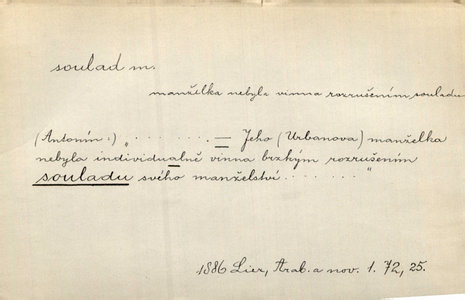 soulad m.
manželka nebyla vinna rozrušením souladu
(Antonín:) „ . . . . . . . — Jeho (Urbanova) manželka
nebyla individualně vinna brzkým rozrušením
souladu svého manželství . . . . . . . "
1886 Lier, Arab. a nov. 1. 72, 25.